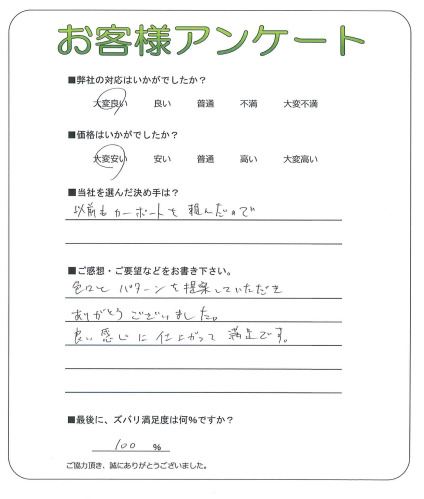 お客様アンケート
■弊社の対応はいかがでしたか？
大変良い 良い 普通 不満 大変不満
■価格はいかがでしたか？
大変安い 安い 普通 高い 大変高い
■当社を選んだ決め手は？
以前もカーポートを頼んだので
■ご感想・ご要望などをお書き下さい。
色々とパターンを提案していただき
ありがとうございました。
良い感じに仕上がって満足です。
■最後に、ズバリ満足度は何%ですか？
100 %
ご協力頂き、誠にありがとうございました。